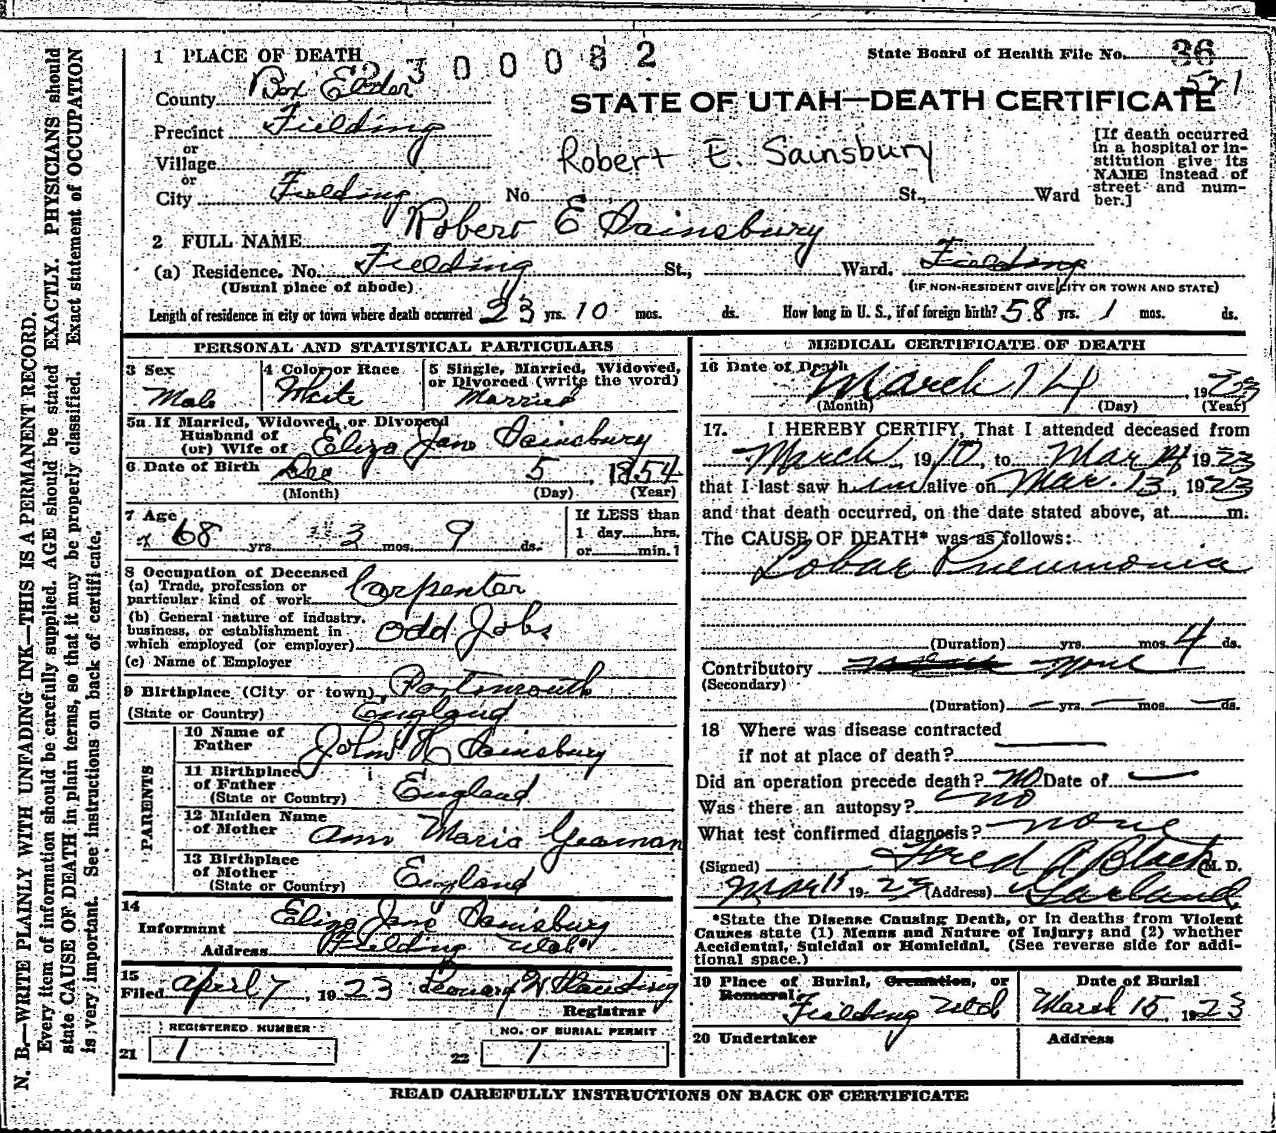 1 PLACE OF DEATH 300082
State Board of Health File No. 36
521
County Box Elder
STATE OF UTAH—DEATH CERTIFICATE
Precinct Fielding
or
Village
or
City Fielding No. St., Ward
Robert E. Sainsbury
[If death occurred
in a hospital or in-
stitution give its
NAME instead of
street and num-
ber.]
2 FULL NAME Robert E Sainsbury
(a) Residence. No. Fielding St., Ward. Fielding
(Usual place of abode)
(IF NON-RESIDENT GIVE CITY OR TOWN AND STATE)
Length of residence in city or town where death occurred 23 yrs. 10 mos. ds. How long in U. S., if of foreign birth? 58 yrs. 1 mos. ds.
PERSONAL AND STATISTICAL PARTICULARS
3 Sex
Male
4 Color or Race
White
5 Single, Married, Widowed,
or Divorced (write the word)
Married
5a If Married, Widowed, or Divorced
Husband of
(or) Wife of Eliza Jane Sainsbury
6 Date of Birth Dec 5, 1854
(Month) (Day) (Year)
7 Age
68 yrs. 3 mos. 9 ds.
If LESS than
1 day hrs.
or min.?
8 Occupation of Deceased
(a) Trade, profession or
particular kind of work Carpenter
(b) General nature of industry,
business, or establishment in
which employed (or employer) Odd Jobs
(c) Name of Employer
9 Birthplace (City or town) Portsmouth
(State or Country) England
PARENTS
10 Name of
Father John H Sainsbury
11 Birthplace
of Father
(State or Country) England
12 Maiden Name
of Mother Ann Maria Yeaman
13 Birthplace
of Mother
(State or Country) England
14
Informant Eliza Jane Sainsbury
Address Fielding Utah
15
Filed April 7, 1923 Leonard
Registrar
REGISTERED NUMBER
21 1
NO. OF BURIAL PERMIT
22 1
MEDICAL CERTIFICATE OF DEATH
16 Date of Death March 14, 1923
(Month) (Day) (Year)
17. I HEREBY CERTIFY, That I attended deceased from
March, 1910, to Mar 14 1923
that I last saw him alive on Mar. 13, 1923
and that death occurred, on the date stated above, at m.
The CAUSE OF DEATH* was as follows:
Lobar Pneumonia
(Duration) yrs. mos. 4 ds.
Contributory None
(Secondary)
(Duration) — yrs. — mos. — ds.
18 Where was disease contracted
if not at place of death?
Did an operation precede death? No Date of —
Was there an autopsy? no
What test confirmed diagnosis? none
(Signed) Fred A Black M. D.
Mar 1923 (Address) Garland
*State the Disease Causing Death, or in deaths from Violent
Causes state (1) Means and Nature of Injury; and (2) whether
Accidental, Suicidal or Homicidal. (See reverse side for addi-
tional space.)
19 Place of Burial, Cremation, or
Removal
Fielding Utah
Date of Burial
March 15, 1923
20 Undertaker
Address
READ CAREFULLY INSTRUCTIONS ON BACK OF CERTIFICATE
N. B.—WRITE PLAINLY WITH UNFADING INK—THIS IS A PERMANENT RECORD.
Every item of information should be carefully supplied. AGE should be stated EXACTLY. PHYSICIANS should
state CAUSE OF DEATH in plain terms, so that it may be properly classified. Exact statement of OCCUPATION
is very important. See instructions on back of certificate.